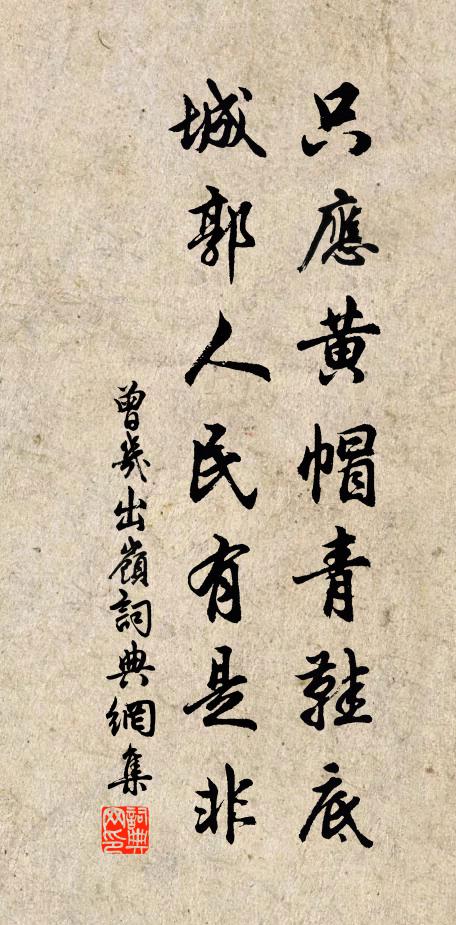 只應黄帽青鞋底
城郭人民有是非
曾幾出嶺詞典網集
詞典
网印